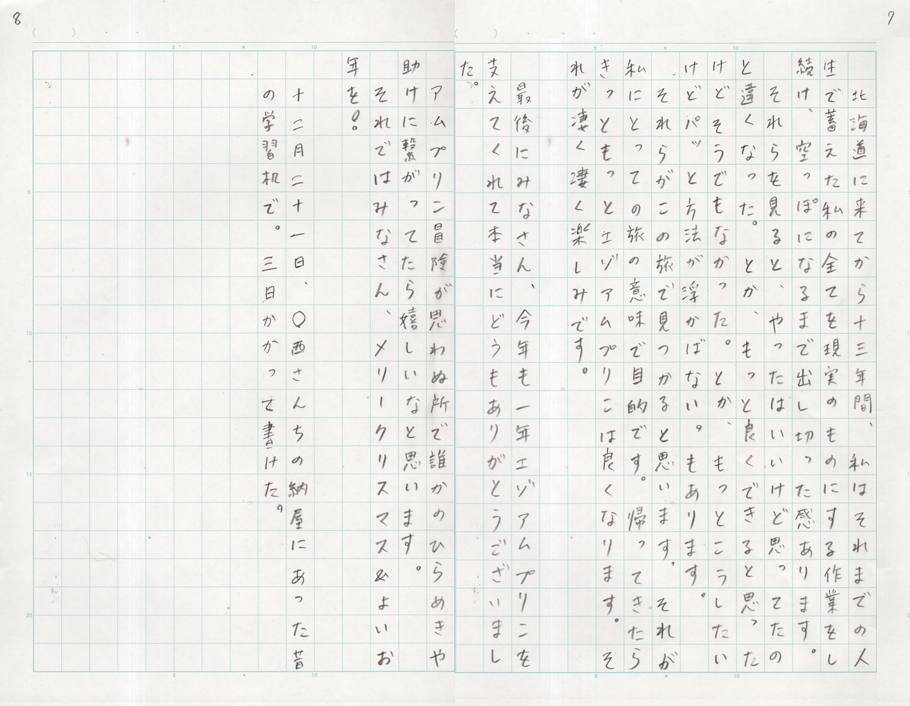 7
北海道に来てから十三年間、私はそれまでの人
生で蓄えた私の全てを現実のものにする作業をし
続け、空っぽになるまで出し切った感あります。
それらを見ると、やったはいいけど思ってたの
と違くなった。とか、もっと良くできると思った
けどそうでもなかった。とか、もっとこうしたい
けどパッと方法が浮かばない。もあります。
それらがこの旅で見つかると思います。それが
私にとっての旅の意味で目的です。帰ってきたら
きっともっとエゾアムプリこは良くなります。そ
れが凄く凄く楽しみです。
最後にみなさん、今年も一年エゾアムプリこを
支えてくれて本当にどうもありがとうございまし
た。
8
アムプリン冒険が思わぬ所で誰かのひらめきや
助けに繋がってたら嬉しいなと思います。
それではみなさん、メリークリスマス&よいお
年を!。
十二月二十一日、〇西さんちの納屋にあった昔
の学習机で。三日かかって書けた。